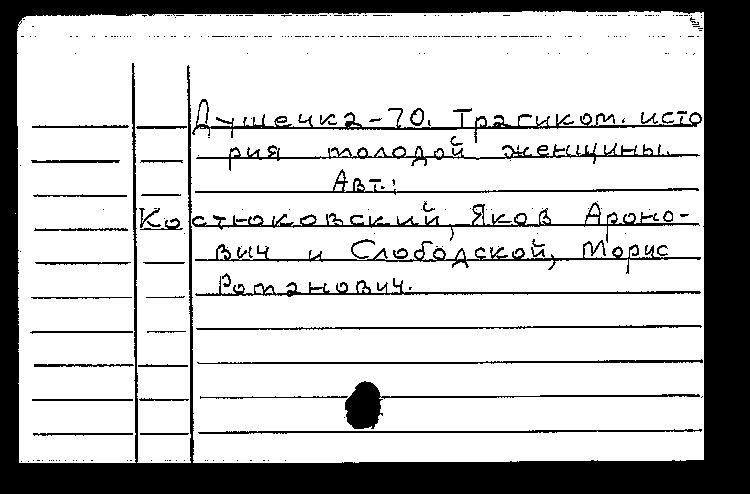 Душечка-70. Трагиком. исто
рия молодой женщины.
Авт.:
Костюковский, Яков Ароно-
вич и Слободской, Морис
Романович.